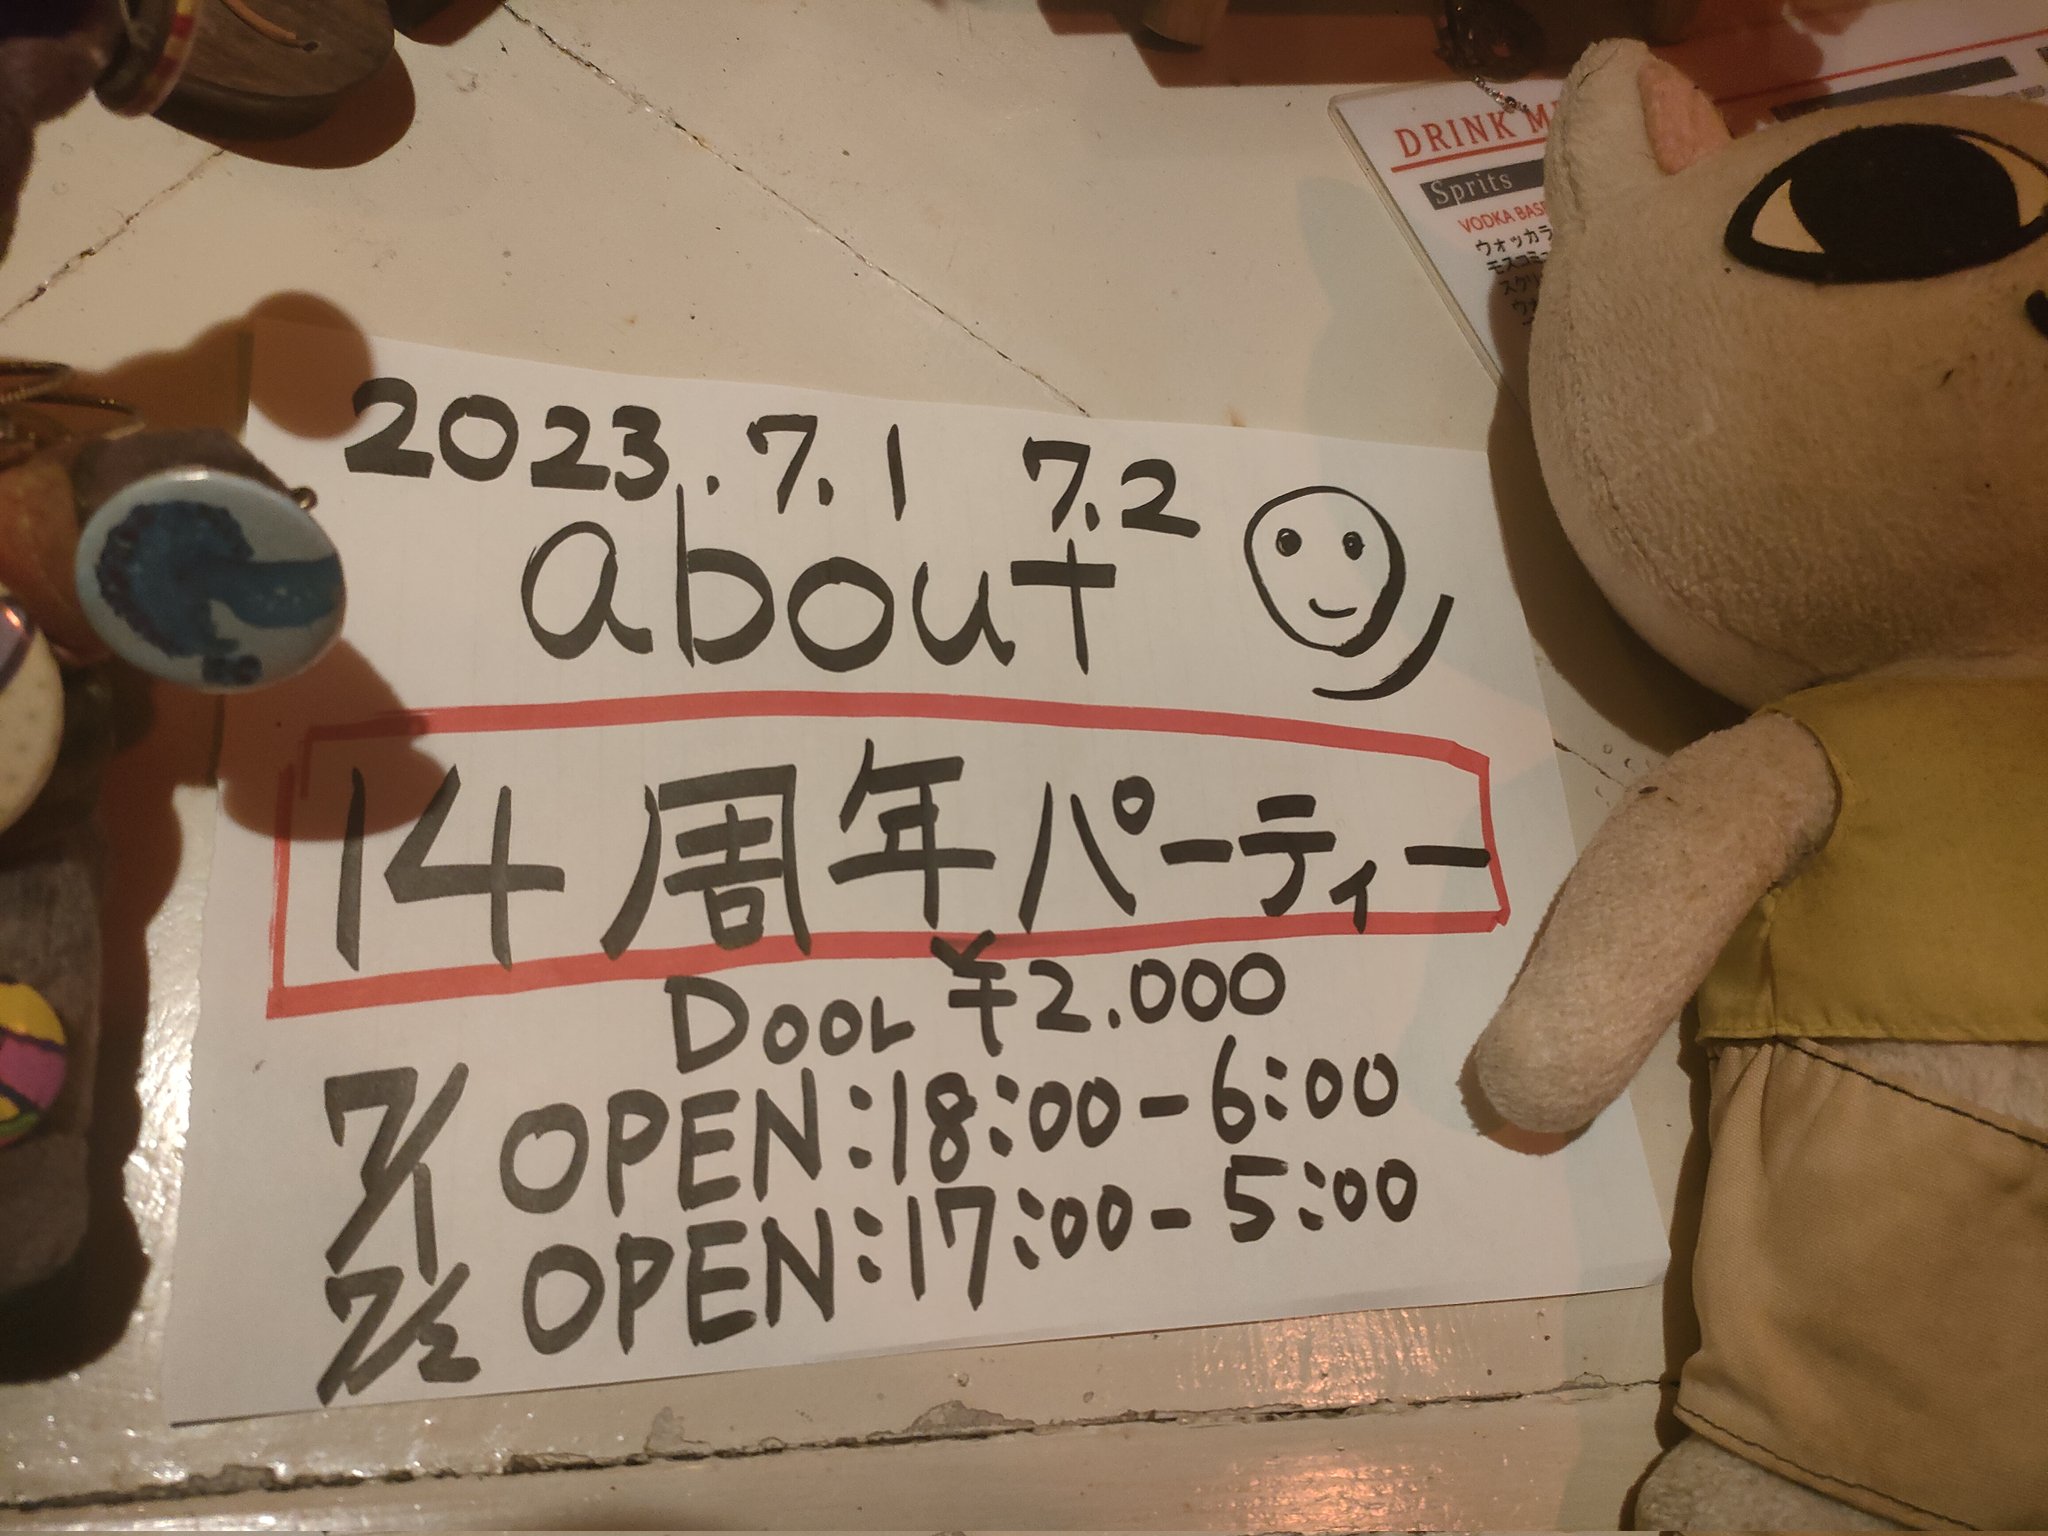 DRINK M
Sprits
VODKA BAS
ウォッカ
モスコミ
スクリ
2023.7.1 7.2
about
14周年パーティー
Door ¥2.000
7/1 OPEN:18:00-6:00
7/2 OPEN:17:00-5:00